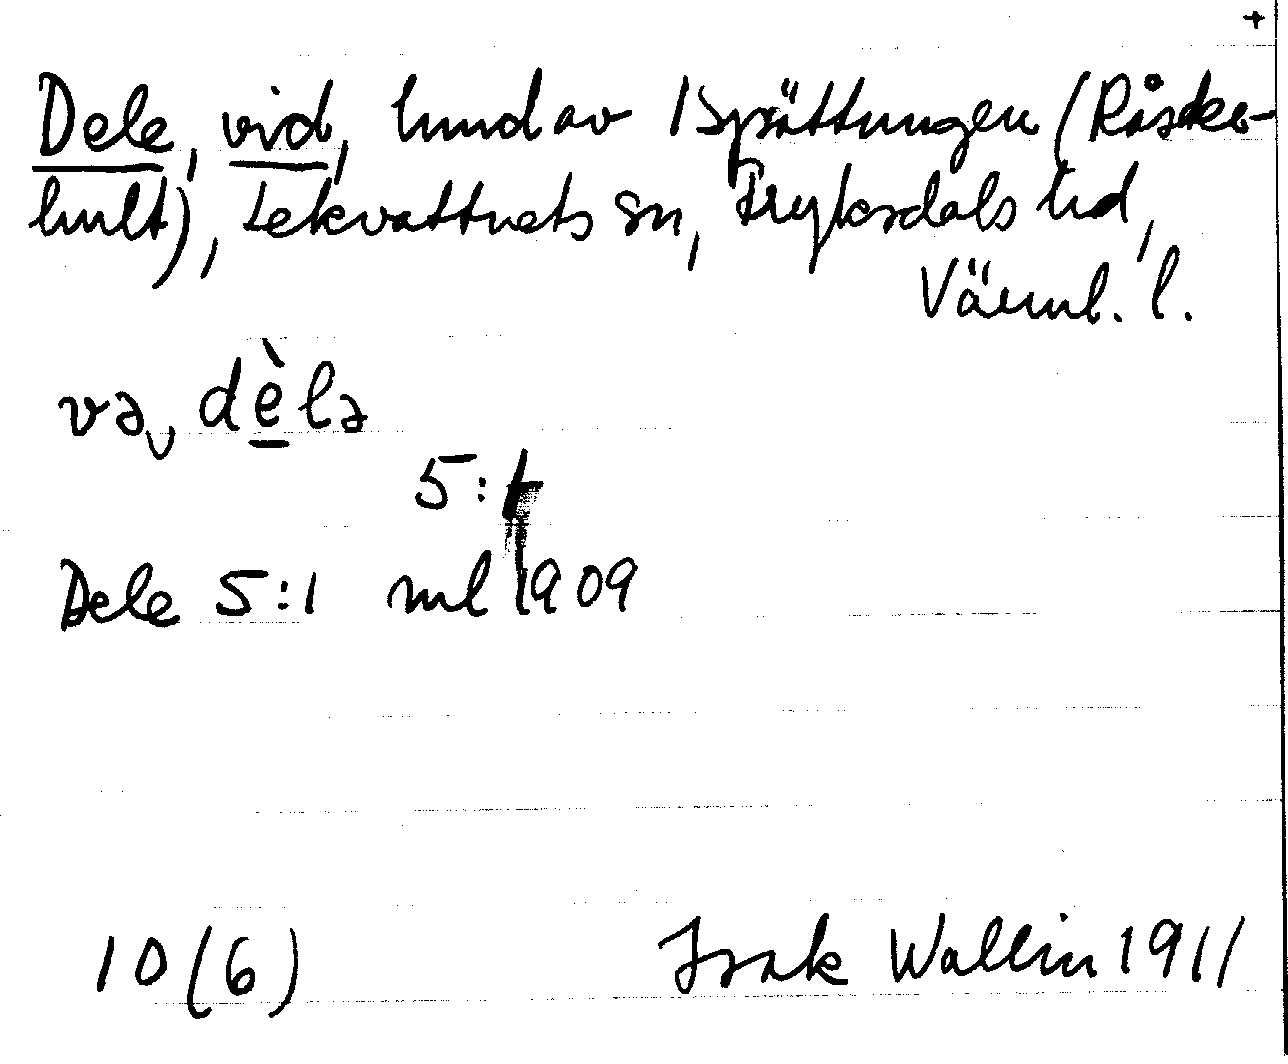 +
Dele, vid, hmd av 1 Sprättungen (Råske-
hult), Lekvattnets sn, Fryksdals hd,
Värml. l.
və‿dèlə
5:1
Dele 5:1 ml 1909
10(6) Isak Wallin 1911